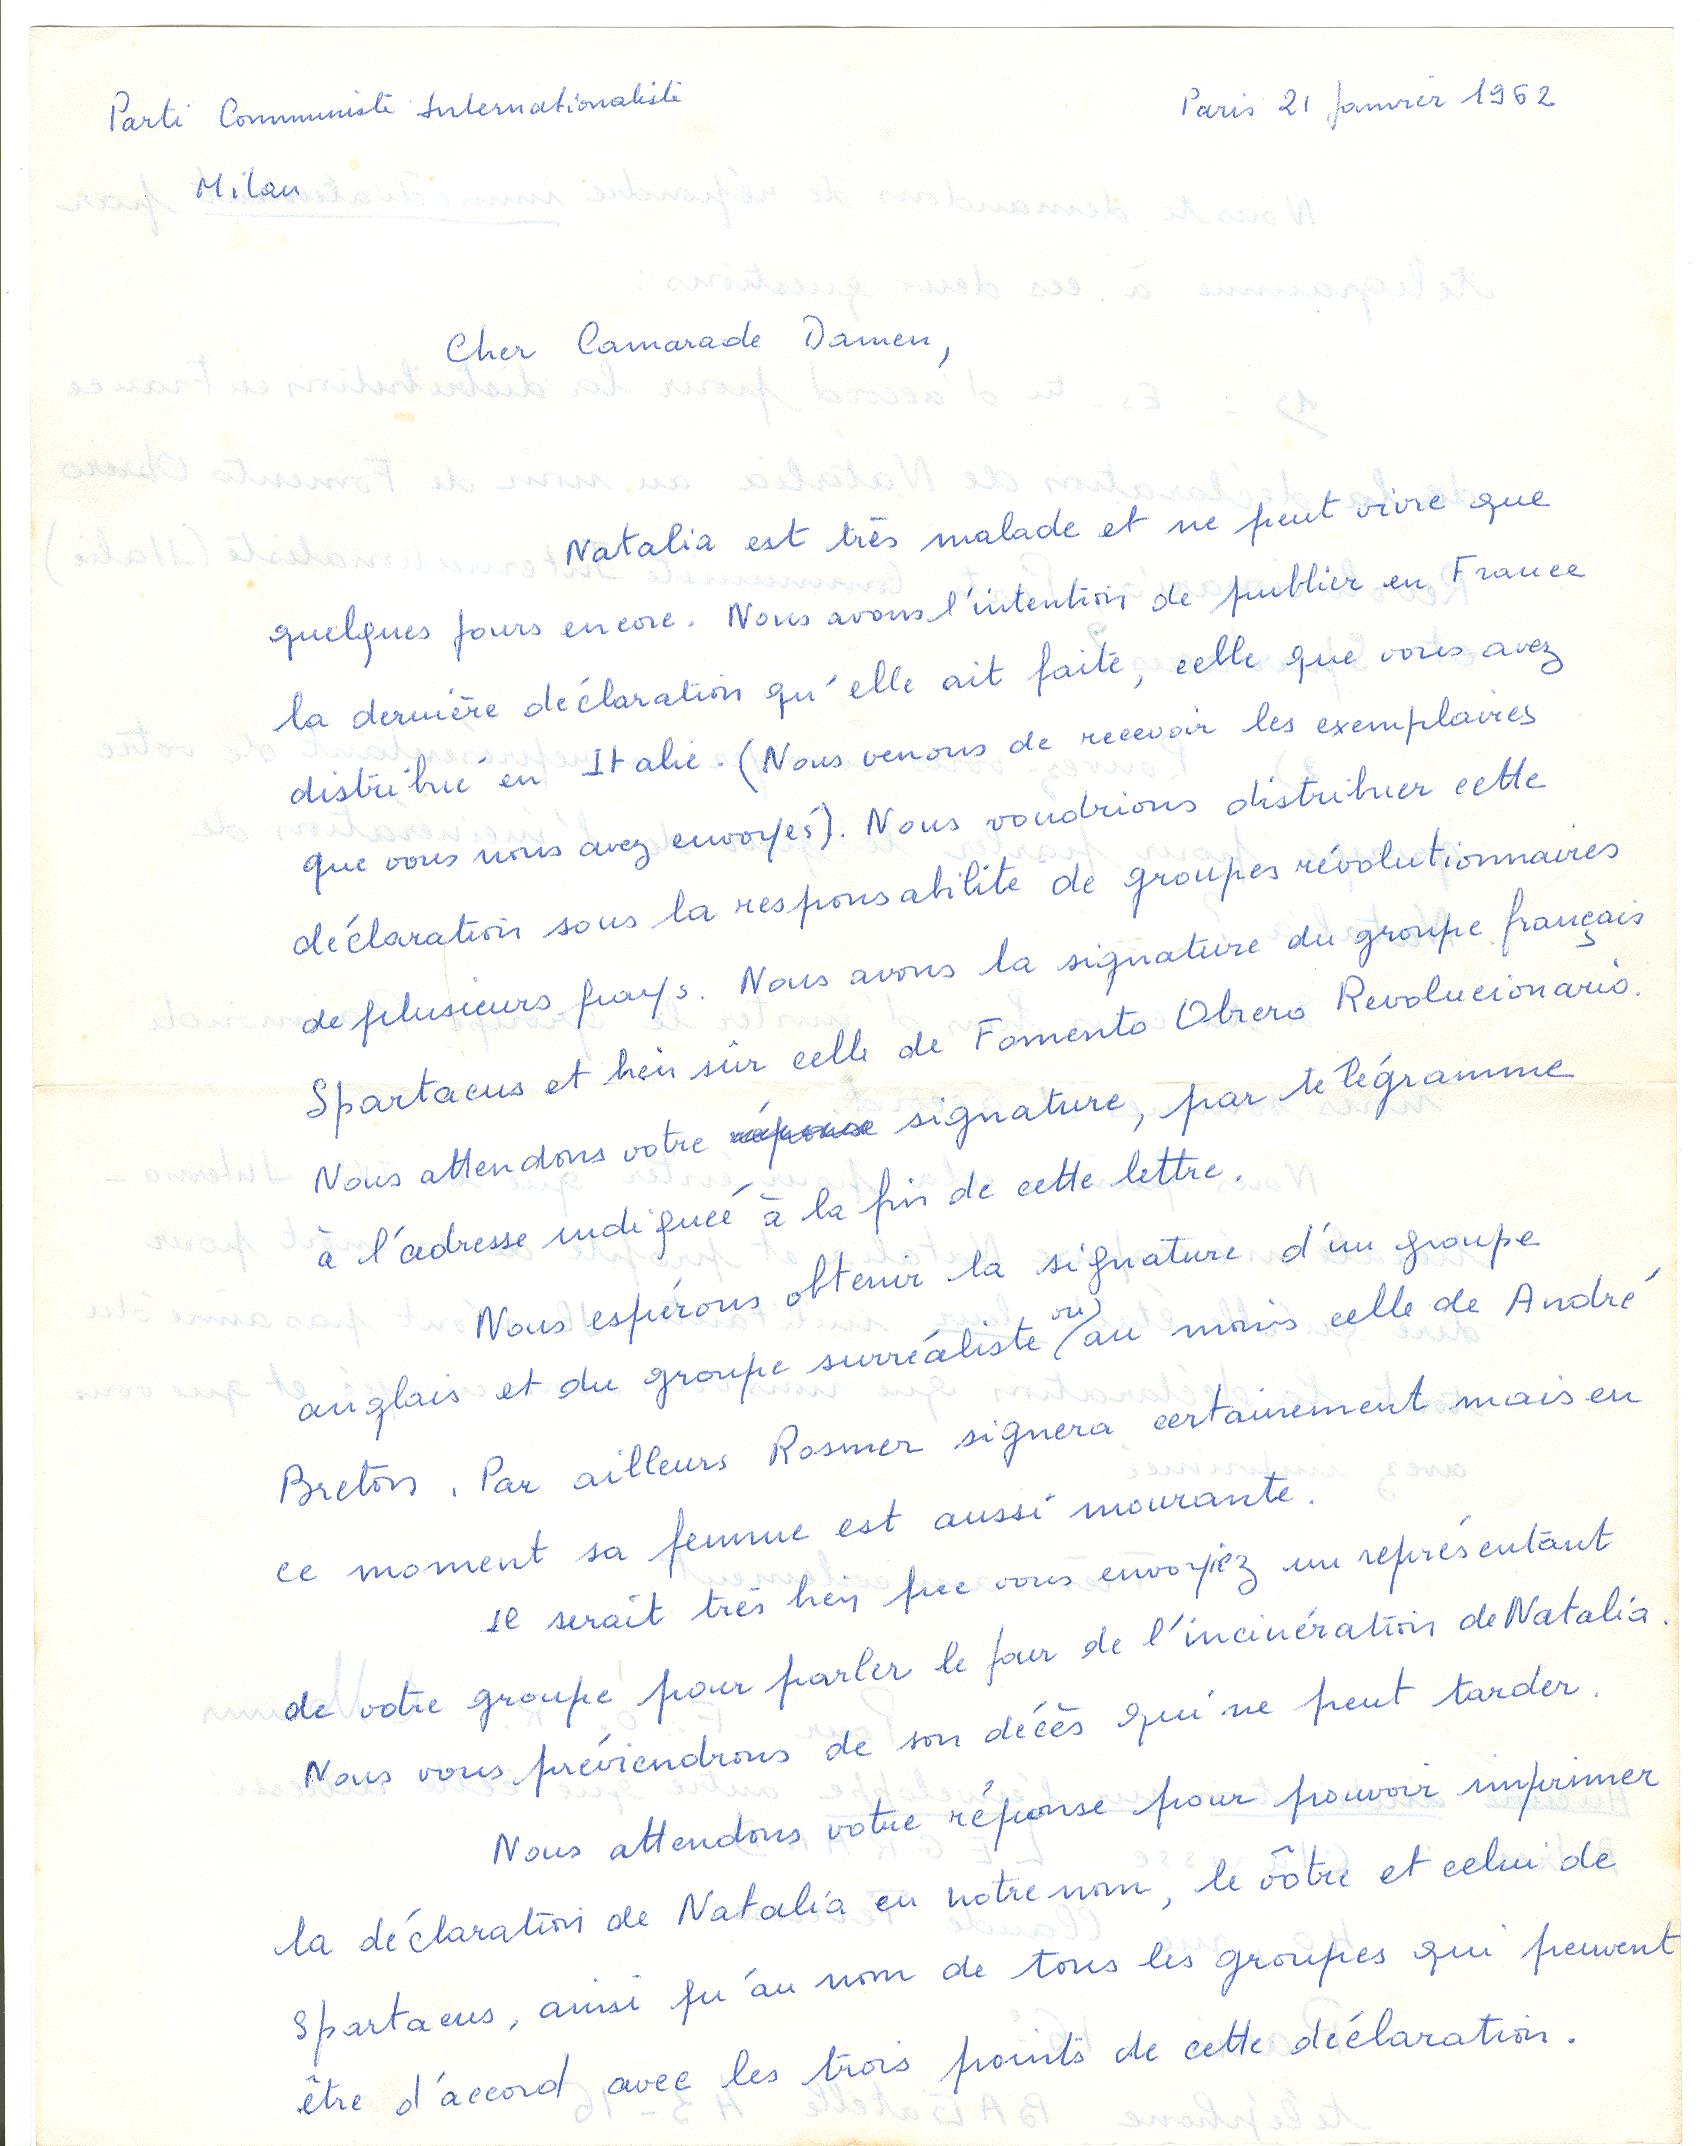 Parti Communiste Internationaliste
Paris 21 Janvier 1962
Milan
Cher Camarade Damen,
Natalia est très malade et ne peut vivre que
quelques jours encore. Nous avons l'intention de publier en France
la dernière déclaration qu'elle ait faite, celle que vous avez
distribué en Italie. (Nous venons de recevoir les exemplaires
que vous nous avez envoyés). Nous voudrions distribuer cette
déclaration sous la responsabilité de groupes révolutionnaires
de plusieurs pays. Nous avons la signature du groupe français
Spartacus et bien sûr celle de Fomento Obrero Revolucionario.
Nous attendons votre réponse signature, par télégramme
à l'adresse indiquée à la fin de cette lettre.
Nous espérons obtenir la signature d'un groupe
anglais et du groupe surréaliste ou au moins celle de André
Breton. Par ailleurs Rosmer signera certainement mais en
ce moment sa femme est aussi mourante.
Il serait très bien que vous envoyiez un représentant
de votre groupe pour parler le jour de l'incinération de Natalia.
Nous vous préviendrons de son décès qui ne peut tarder.
Nous attendons votre réponse pour pouvoir imprimer
la déclaration de Natalia en notre nom, le vôtre et celui de
Spartacus, ainsi qu'au nom de tous les groupes qui peuvent
être d'accord avec les trois points de cette déclaration.